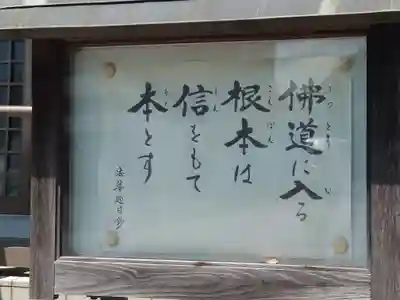 佛道に入る
根本は
信をもて
本とす
法華題目鈔